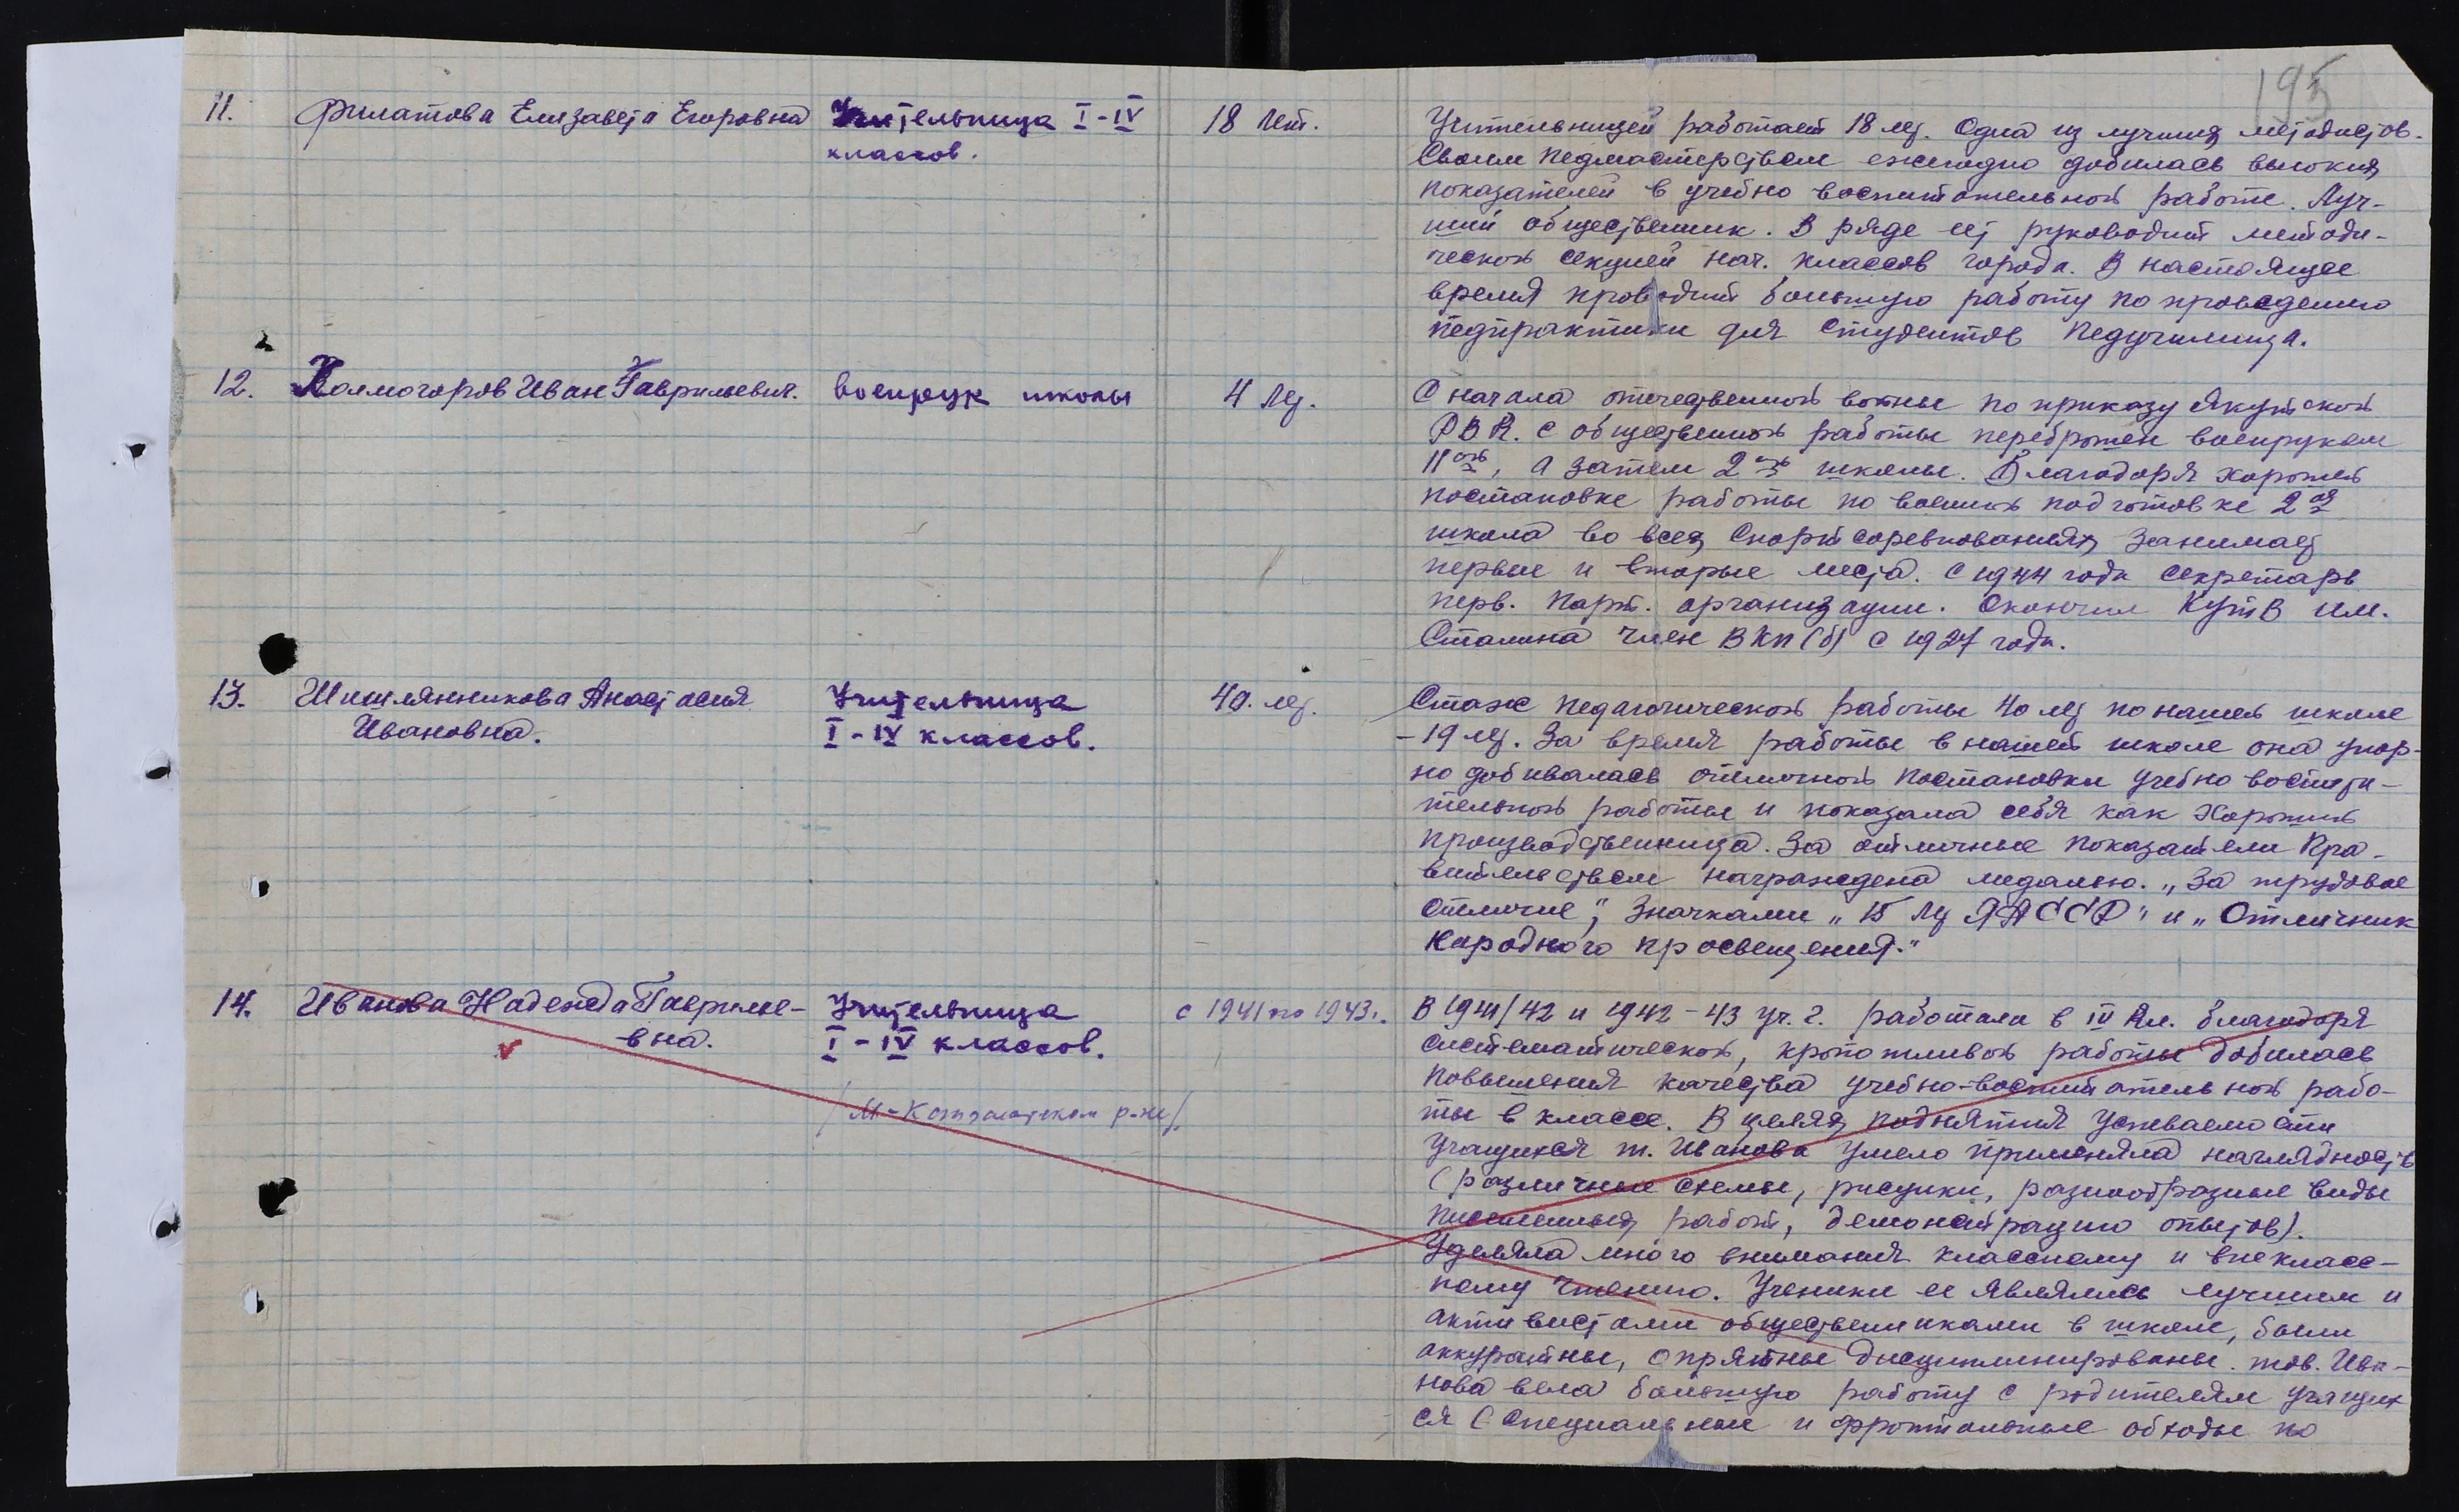 195
11. Филатова Елизавета Егоровна Учительница I-IV
классов.
18 лет.
Учительницей работает 18 лет. Одна из лучших методистов.
Своим педмастерством ежегодно добилась высоких
показателей в учебно воспитательной работе. Луч-
ший общественник. В ряде лет руководит методи-
ческой секцией нач. классов города. В настоящее
время проводит большую работу по проведению
педпрактики для студентов Педучилища.
12. Колмогоров Иван Гаврильевич. военрук школы
4 лет.
С начала отечественной войны по приказу Якутской
РВК. с общественной работы переброшен военруком
11ой, а затем 2ой школы. Благодаря хорошей
постановке работы по военной подготовке 2ая
школа во всех спорт соревнованиях занимает
первые и вторые места. С 1944 года секретарь
перв. парт. организации. Окончил КутВ им.
Сталина член ВКП(б) с 1927 года.
13. Шишлянникова Анастасия
Ивановна.
Учительница
I-IV классов.
40. лет.
Стаж педагогической работы 40 лет по нашей школе
-19 лет. За время работы в нашей школе она упор-
но добивалась отличной постановки учебно воспита-
тельной работы и показала себя как хороший
производственница. За отличные показатели Пра-
вительством награждена медалью. „За трудовое
отличие", значками „15 лет ЯАССР" и „Отличник
народного просвещения."
14. Иванова Надежда Гаврилье-
вна.
Учительница
I-IV классов.
/М-Кангаласском р-не/.
с 1941 по 1943г.
В 1941/42 и 1942-43 уч. г. работала в IV кл. благодаря
систематической, кропотливой работы добилась
повышения качества учебно-воспитательной рабо-
ты в классе. В целях поднятия успеваемости
учащихся т. Иванова умело применяла наглядность
(различные схемы, рисунки, разнообразные виды
письменных работ, демонстрацию опытов).
Уделяла много внимания классному и внекласс-
ному чтению. Ученики ее являлись лучшим и
активистами общественниками в школе, были
аккуратны, опрятные дисциплинированы. тов. Ива-
нова вела большую работу с родителям учащих
ся (специальные и фронтальные обходы по